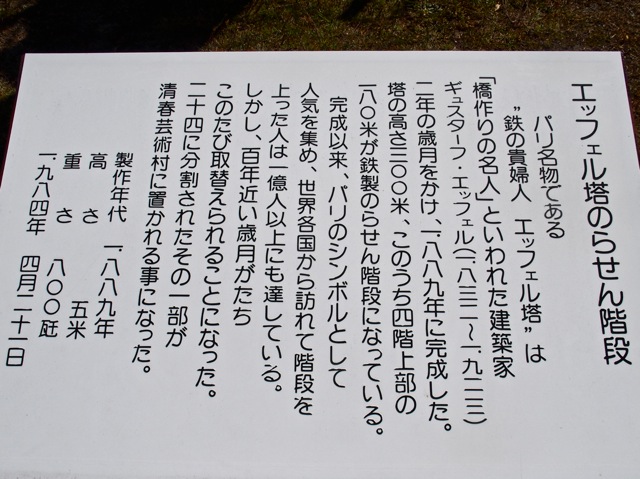 エッフェル塔のらせん階段
パリ名物である
”鉄の貴婦人 エッフェル塔”は
「橋作りの名人」といわれた建築家
ギュスターフ・エッフェル(一.八三二～一.九二三)
二年の歳月をかけ、一.八八九年に完成した。
塔の高さ三〇〇米、このうち四階上部の
一八〇米が鉄製のらせん階段になっている。
完成以来、パリのシンボルとして
人気を集め、世界各国から訪れて階段を
上った人は一億人以上にも達している。
しかし、百年近い歳月がたち
このたび取替えられることになった。
二十四に分割されたその一部が
清春芸術村に置かれる事になった。
製作年代 一.八八九年
高さ 五米
重さ 八〇〇瓩
一.九八四年 四月二十一日